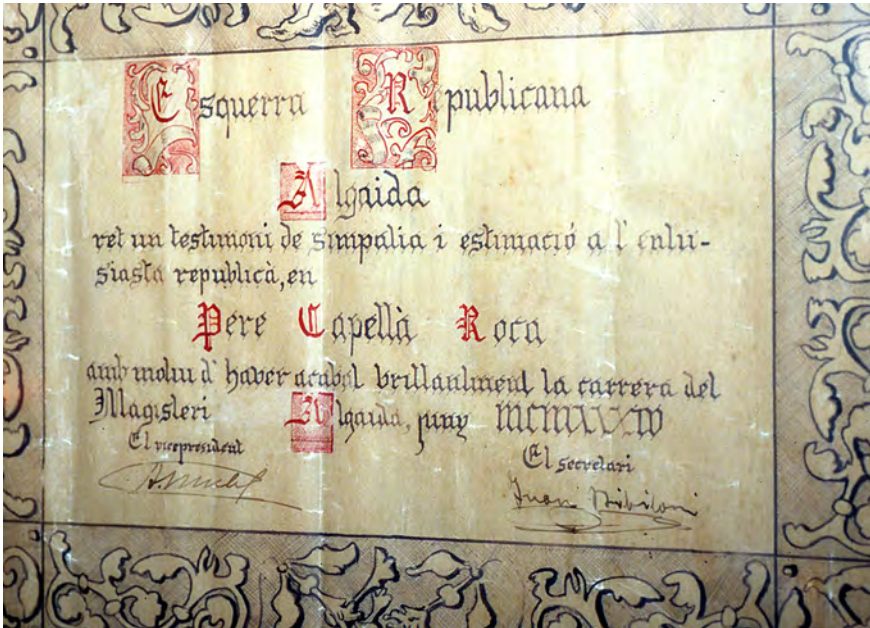 Esquerra Republicana
Algaida
ret un testimoni de simpatia i estimació a l'entu-
siasta republicà, en
Pere Capellà Roca
amb motiu d'haver acabat brillantment la carrera del
Magisteri Algaida, juny
El vicepresident
El secretari
Juan Bibiloni